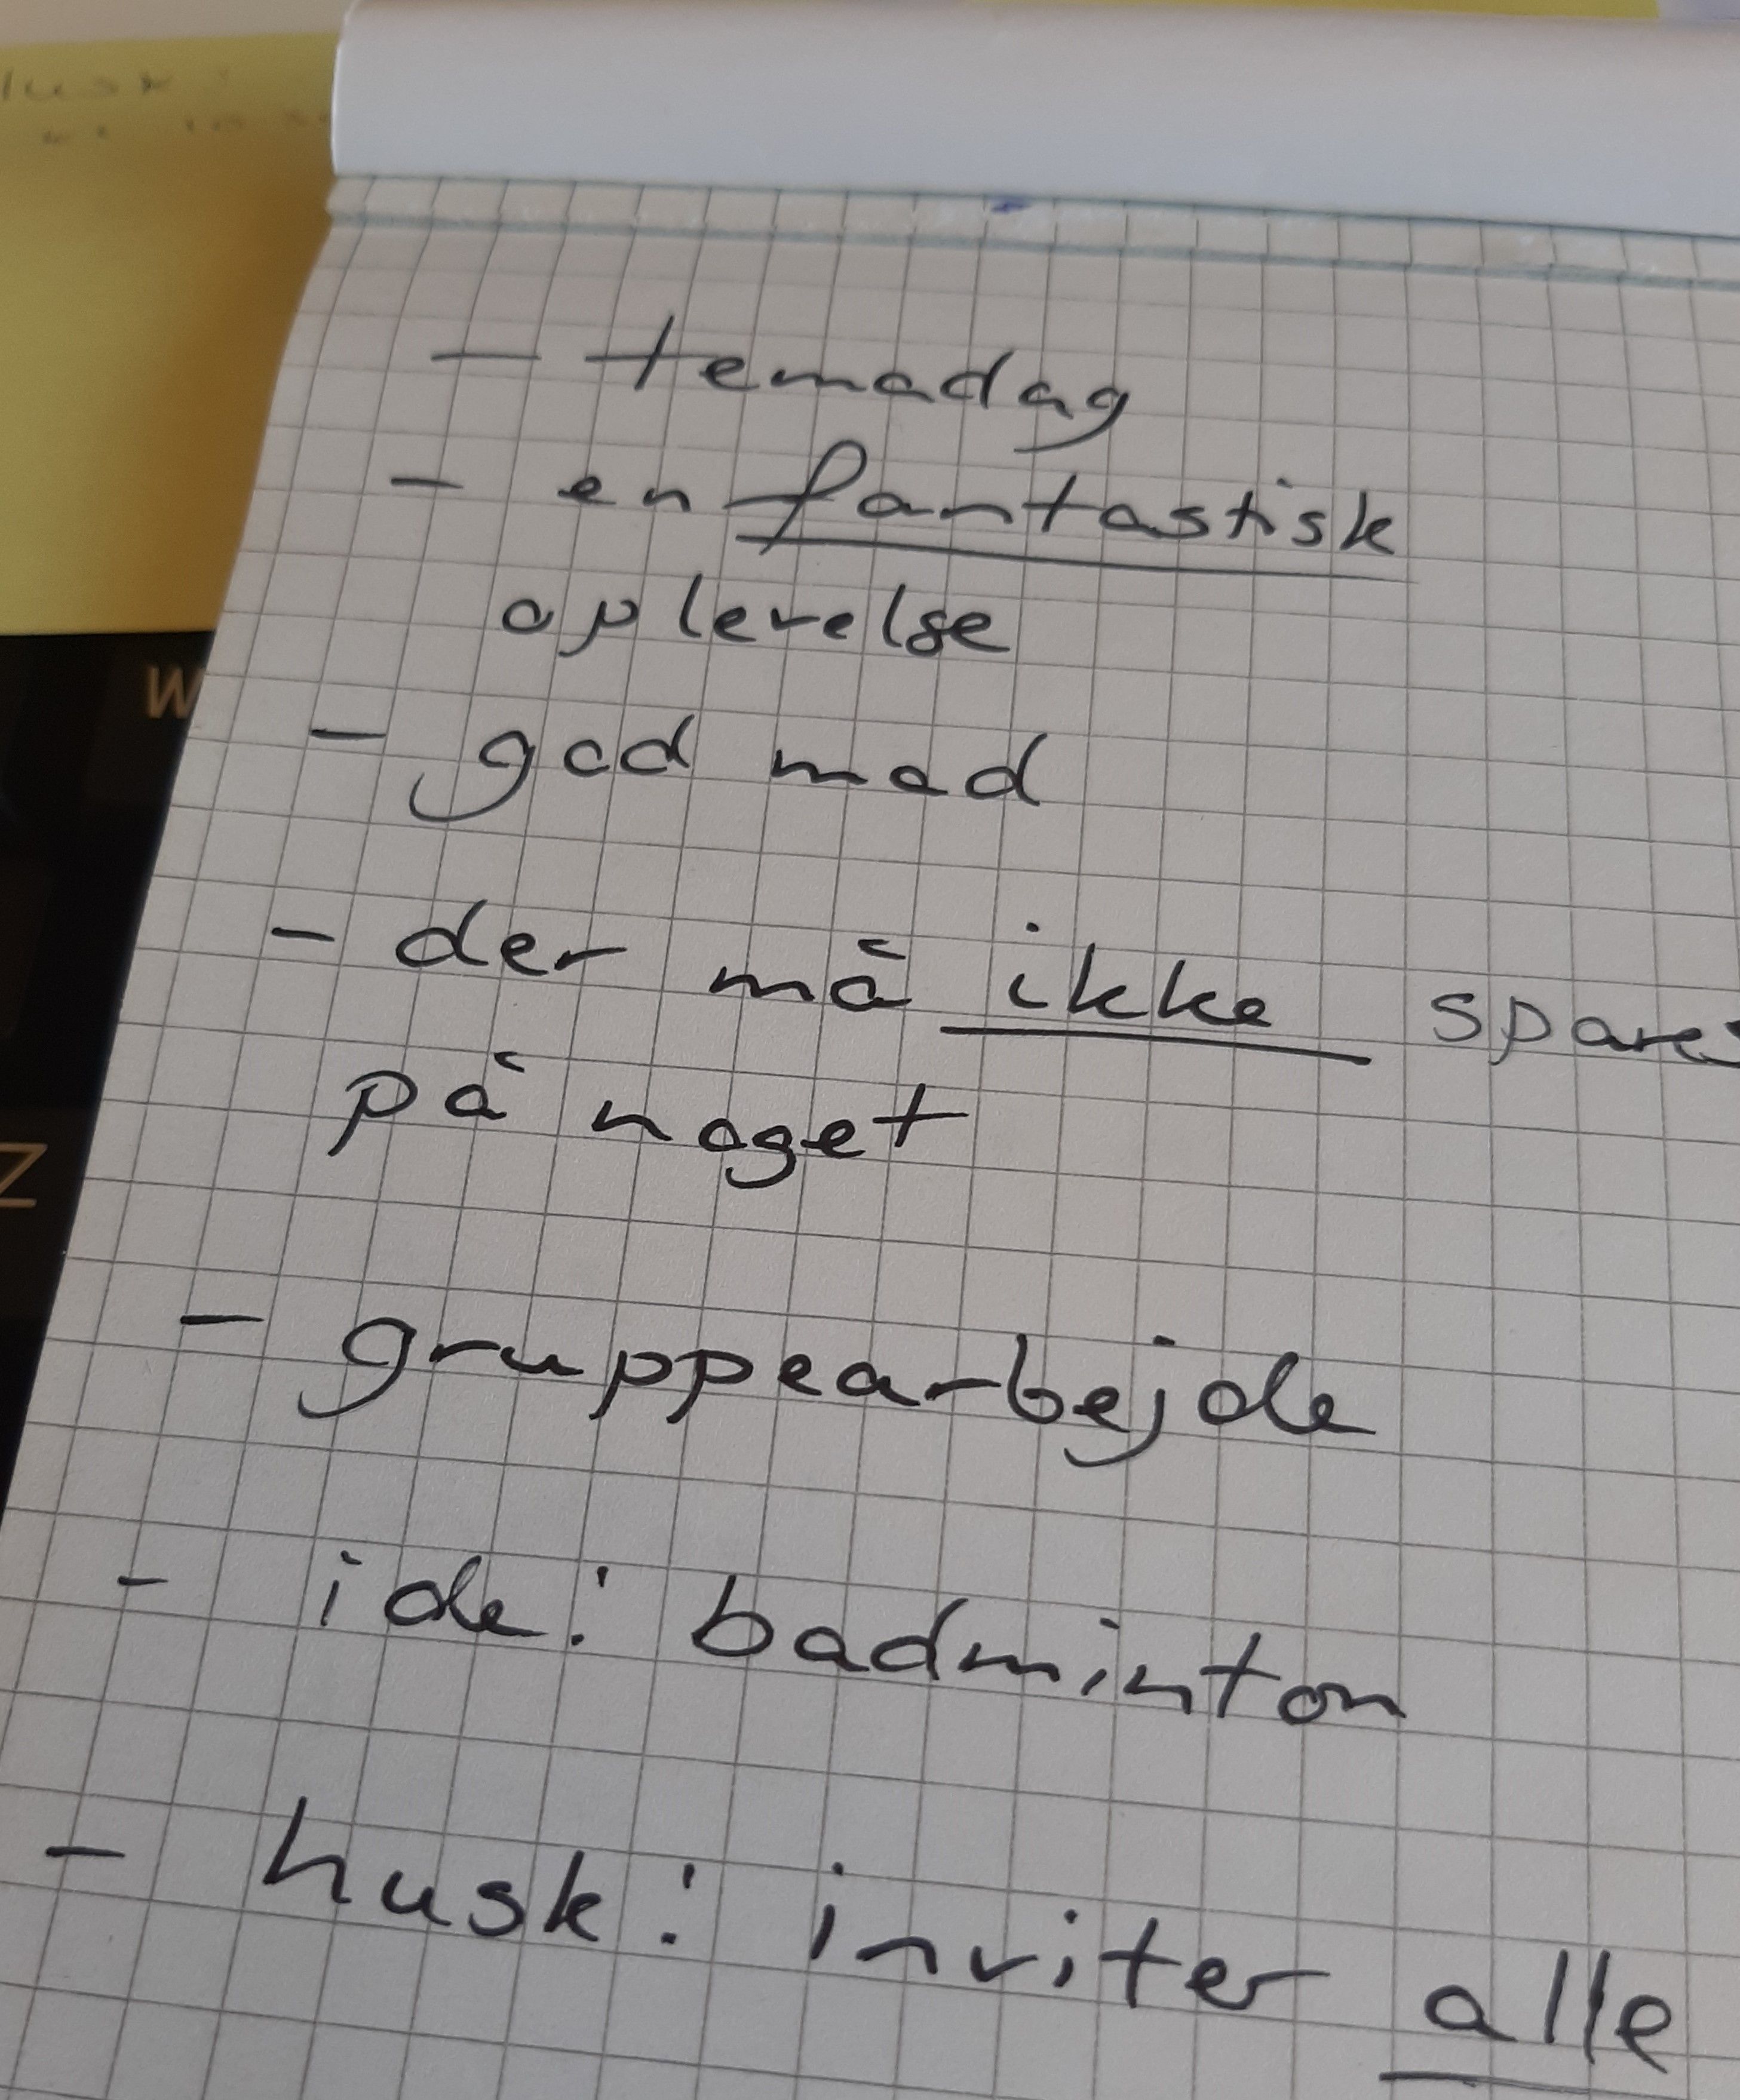 Husk:
- temadag
- en fantastisk
oplevelse
- god mad
- der må ikke spares
på noget
- gruppearbejde
- ide: badminton
- husk: inviter alle
W
Z